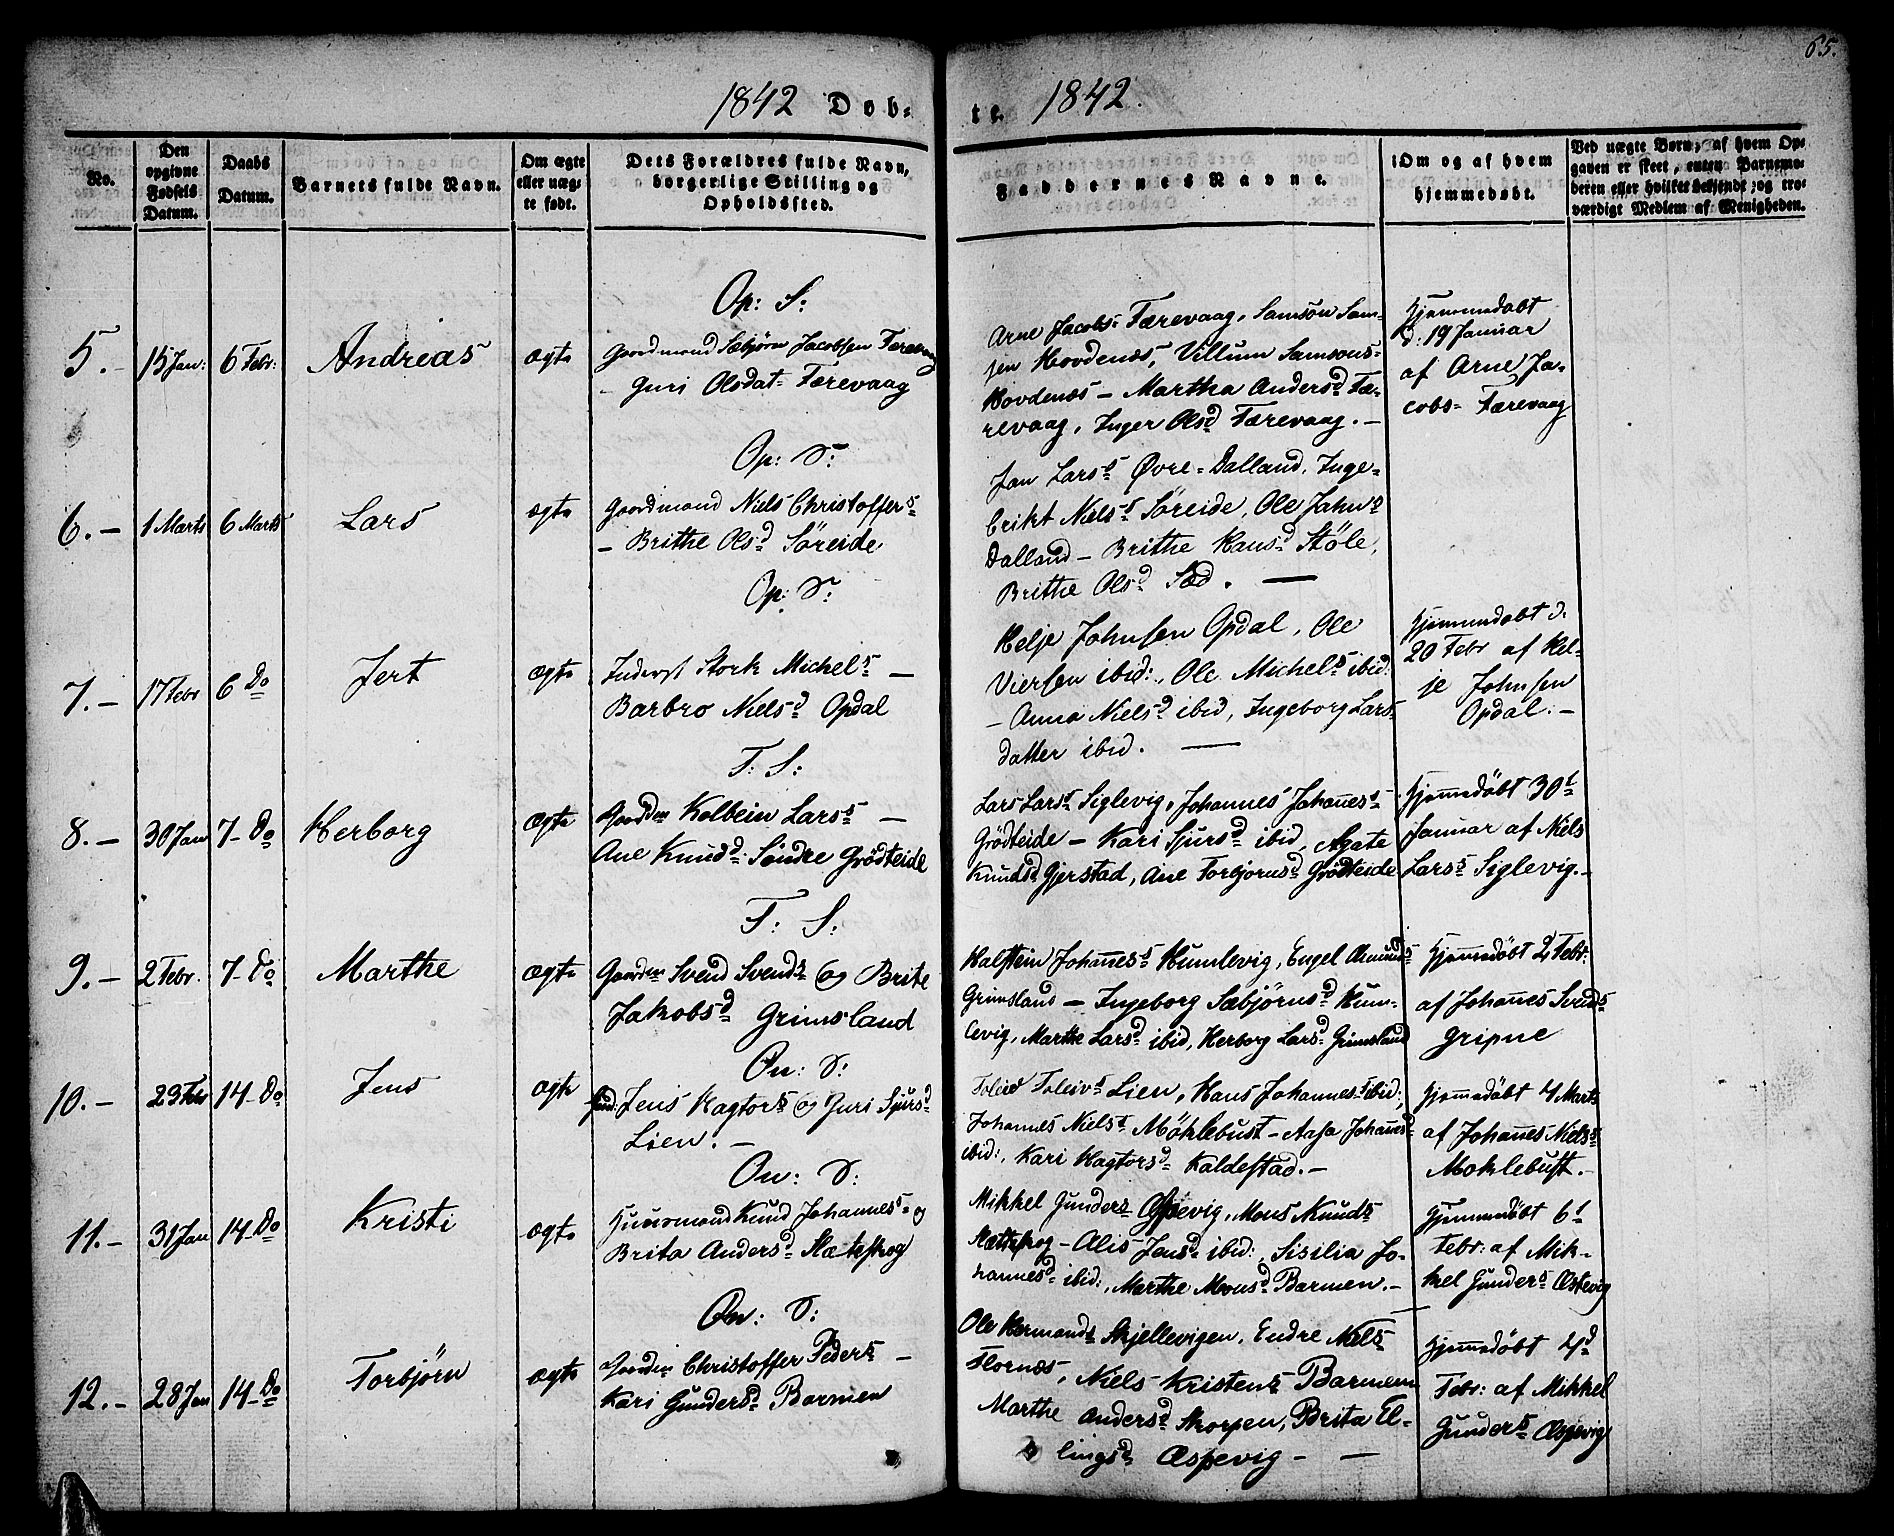 65.
1842 Døb-
te. 1842.
No.
Den
opgivne
Fødsels
Datum.
Daabs
Datum.
Barnets fulde Navn.
Om ægte
eller uæg-
te født.
Dets Forældres fulde Navn,
borgerlige Stilling og
Opholdssted.
Faddernes Navne.
Om og af hvem
hjemmedøbt.
Ved uægte Børn, af hvem Op-
gaven er skeet, enten Barnemo-
deren eller hvilket bekjendt og tro-
værdigt Medlem af Menigheden.
Op: S:
5.- 15 Jan: 6 Febr: Andreas ægte
Gaardmand Sæbjørn Jacobsen Færevaag
- Guri Olsdat= Færevaag
Arne Jacobs= Færevaag, Samson Sam-
sen Hovdenæs, Villum Samsons=
Hovdenæs - Martha Andersd Fæ-
revaag, Inger Olsd Færevaag. -
Hjemmedøbt
d: 19 Januar
af Arne Ja-
cobs= Færevaag
Op: S:
6.- 1 Marts 6 Marts Lars ægte
Gaardmand Niels Christoffers
- Brithe Olsd Søreide
Jan Larss Øvre=Dalland, Inge-
brikt Nielss Søreide, Ole Jahns
Dalland - Brithe Hansd Støle,
Brithe Olsd Sæd. -
Op: S:
7.- 17 Febr 6 Do Jert ægte
Inderst Stork Michels -
Barbro Nielsd Opdal
Helje Johnsen Opdal, Ole
Viersen ibid:, Ole Michels ibid:
- Anna Nielsd ibid, Ingeborg Lars-
datter ibid. -
Hjemmedøbt d.
20 Febr af Hel-
je Johnsen
Opdal. -
T: S:
8.- 30 Jan 7- Do Herborg ægte
Gaardm Kolbein Larss -
Ane Knudsd: Søndre Grødteide
Lars Larss Siglevig, Johannes Johañess
Grødteide - Kari Sjursd ibid, Agate
Knudsd Gjerstad, Ane Torbjørnsd Grødteide
Hjemedøbt 30t
Januar af Niels
Larss Siglevig. -
T: S:
9.- 2 Febr. 7- Do Marthe ægte
Gaardm Svend Svends og Brite
Jakobsd Grimsland
Halstein Johañess Humlevig, Engel Asmunds
Grimsland - Ingeborg Sæbjørnsd Hum-
levig, Marthe Larsd ibid, Herborg Larsd Grimsland
Hjemedøbt 2 Febr:
af Johañes Svends
Gripne
On: S:
10.- 23 Febr 14- Do Jens ægte
Jens Hagtors og Guri Sjurs-
Lien. -
Toleivs Lien, Hans Johannes= ibid:,
Johannes Niels= Møklebust - Aasa Johañesd
ibid:, Kari Hagtorsd Kaldestad. -
Hjemedøbt 4 Marts
af Johañes Nielss
Moklebust. -
On: S:
11.- 31 Jan 14- Do Kristi ægte
Huusmand Knud Johanness og
Brita Andersd Slæteskog
Mikkel Gunders Æspevig, Mons Knuds
Slætteskog - Alis Jensd ibid:, Sisilia Jo-
hannesd ibid:, Marthe Monsd Barmen. -
Hjemmedøbt 6t
Febr: af Mik-
kel Gunders Æspevig
On: S:
12.- 28 Jan 14- Do Torbjørn ægte
Gaardm Christoffer Peders -
Kari Gundersd Barmen
Ole Hermands Skjellevigen, Endre Niels
Flornæs, Niels Kristens Barmen
Marthe Andersd Skorpen, Brita El-
lingsd Æspevig - -
Hjemedøbt 4d
Febr: af Mikkel
Gunders Æspevig